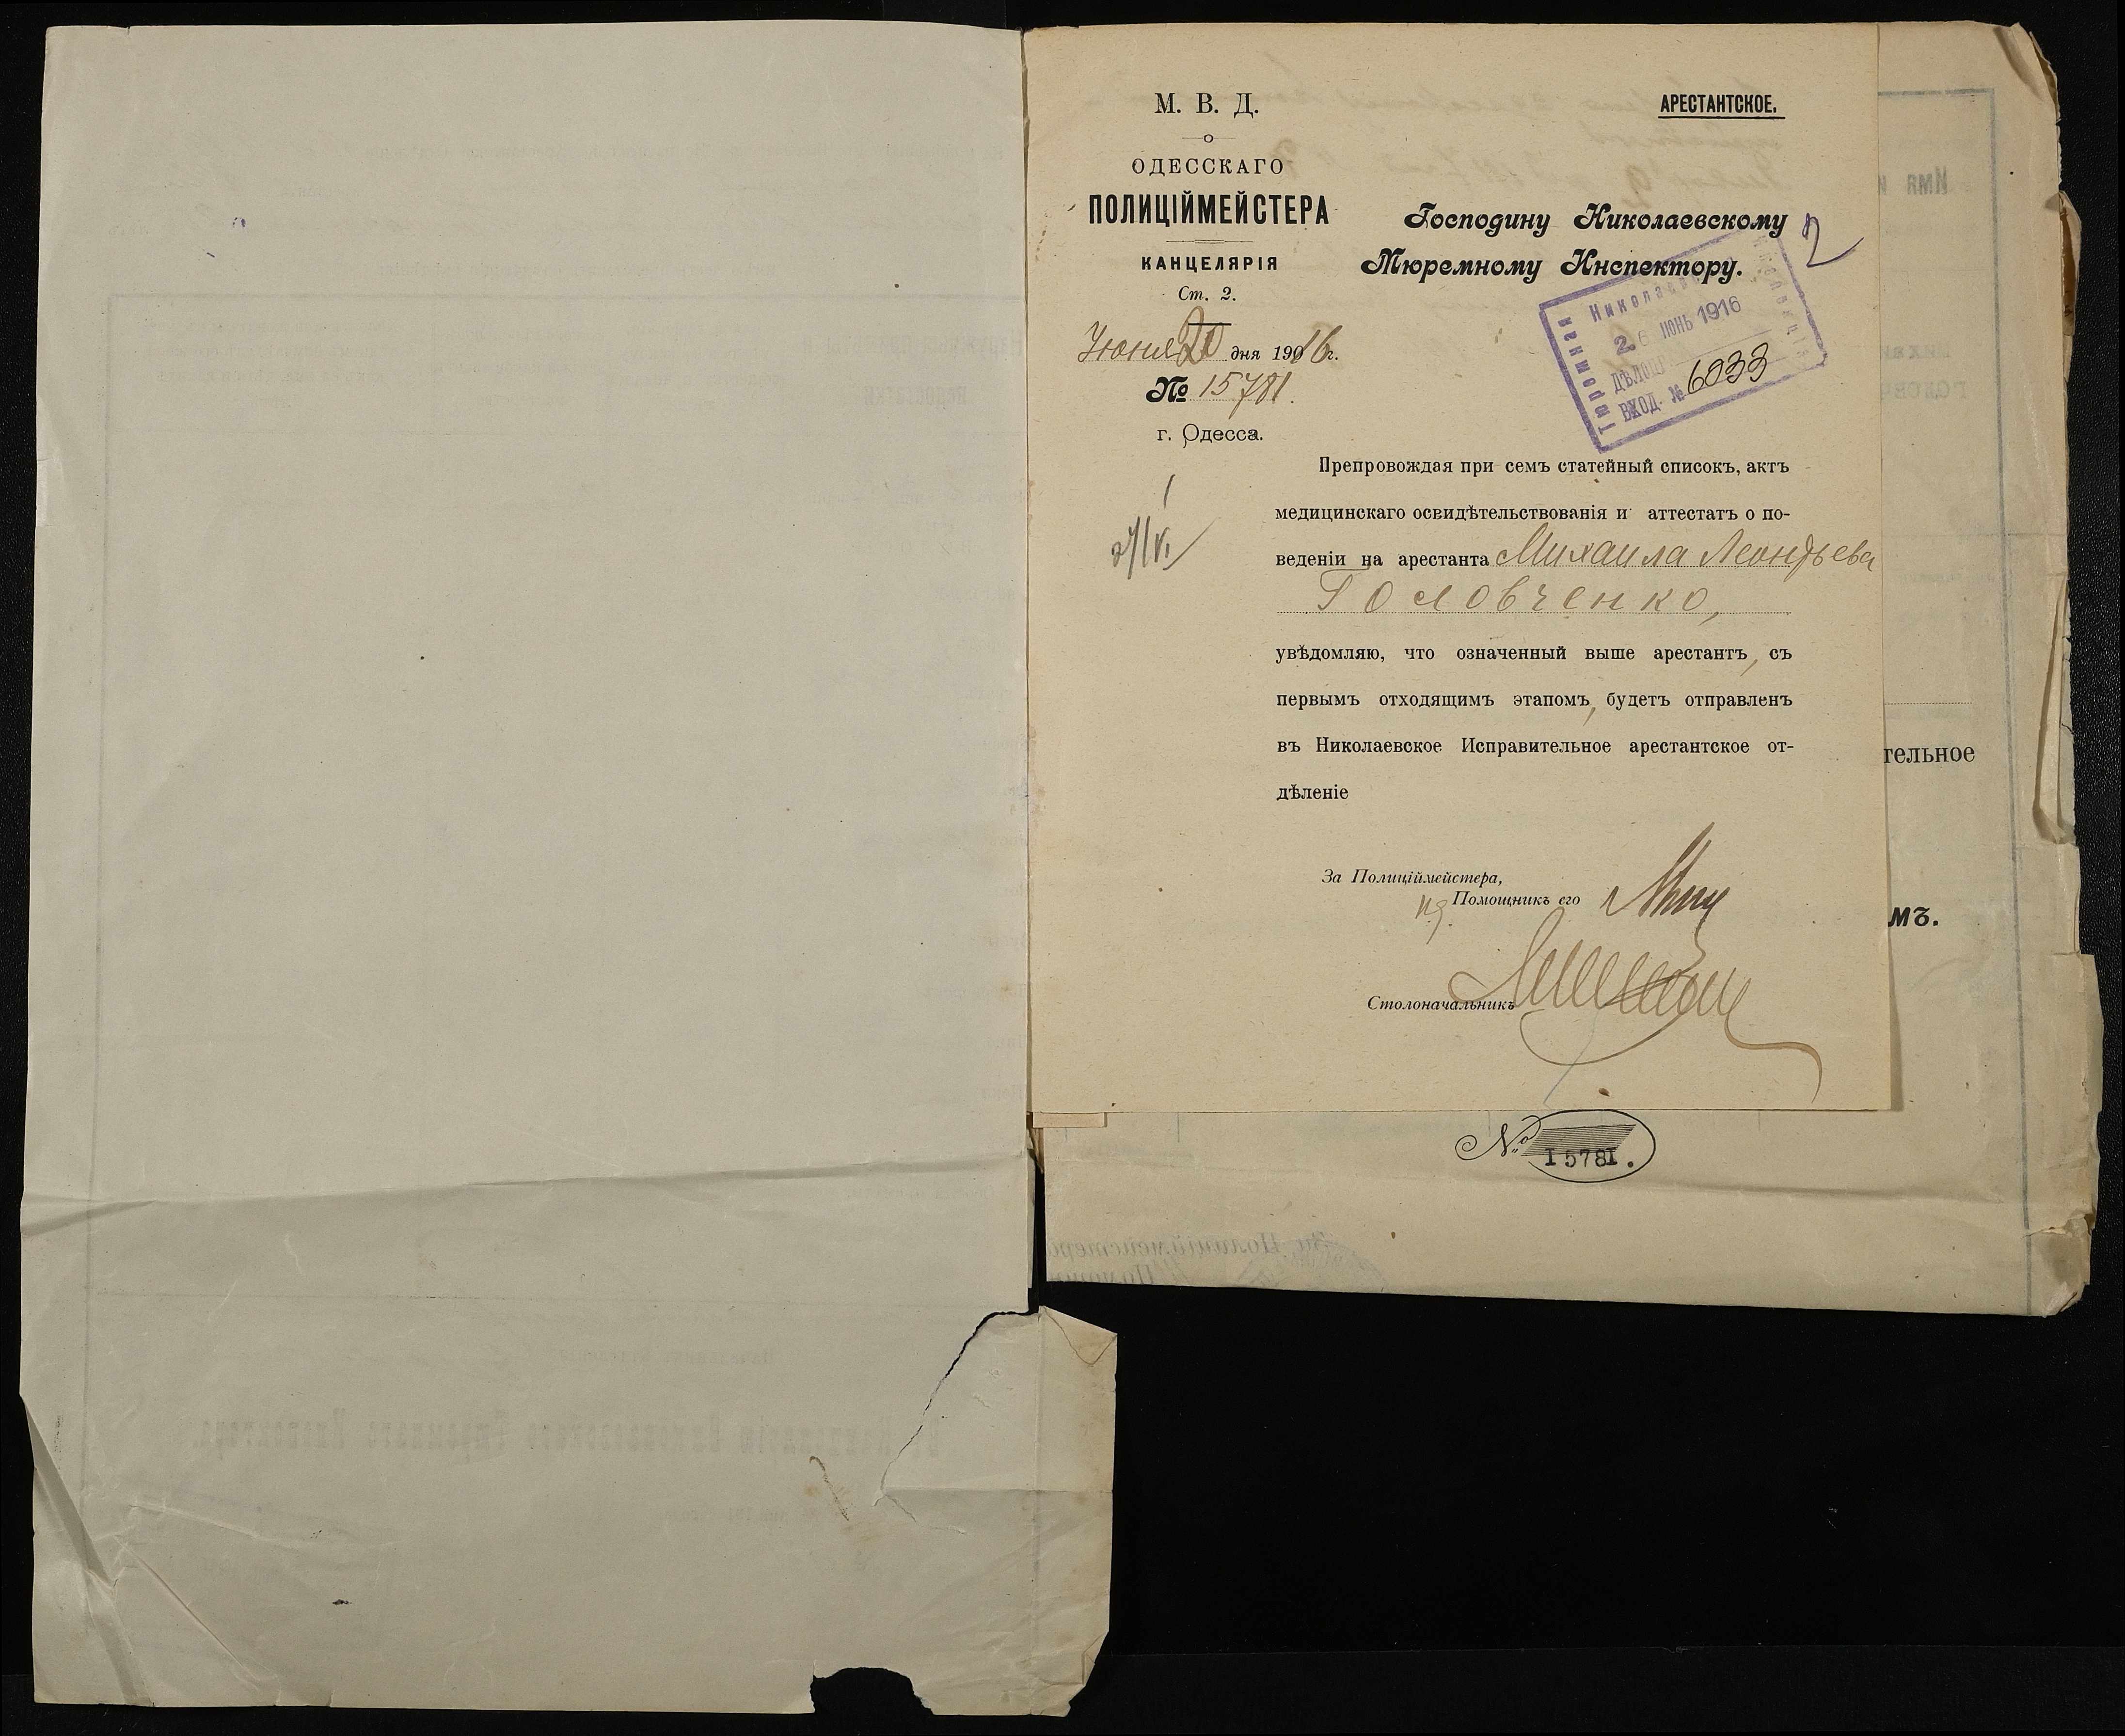 М. В. Д.
ОДЕССКАГО
ПОЛИЦІЙМЕЙСТЕРА
КАНЦЕЛЯРІЯ
Ст. 2.
Июня 20 дня 1916 г.
№ 15781.
г. Одесса.
АРЕСТАНТСКОЕ.
Господину Николаевскому
Тюремному Инспектору.
2
Тюремная
Николаевск
Инспекція
26 ІЮНЬ 1916
ДѢЛО №
ВХОД. № 6033
Препровождая при семъ статейный списокъ, актъ
медицинскаго освидѣтельствованія и аттестатъ о по-
веденіи на арестанта Михаила Леонтьева
Головченко,
увѣдомляю, что означенный выше арестантъ, съ
первымъ отходящимъ этапомъ, будетъ отправленъ
въ Николаевское Исправительное арестантское от-
дѣленіе
27/VI
За Полиціймейстера,
Помощникъ его
Столоначальникъ
№ 15781.
Имя и
тельное
мъ.